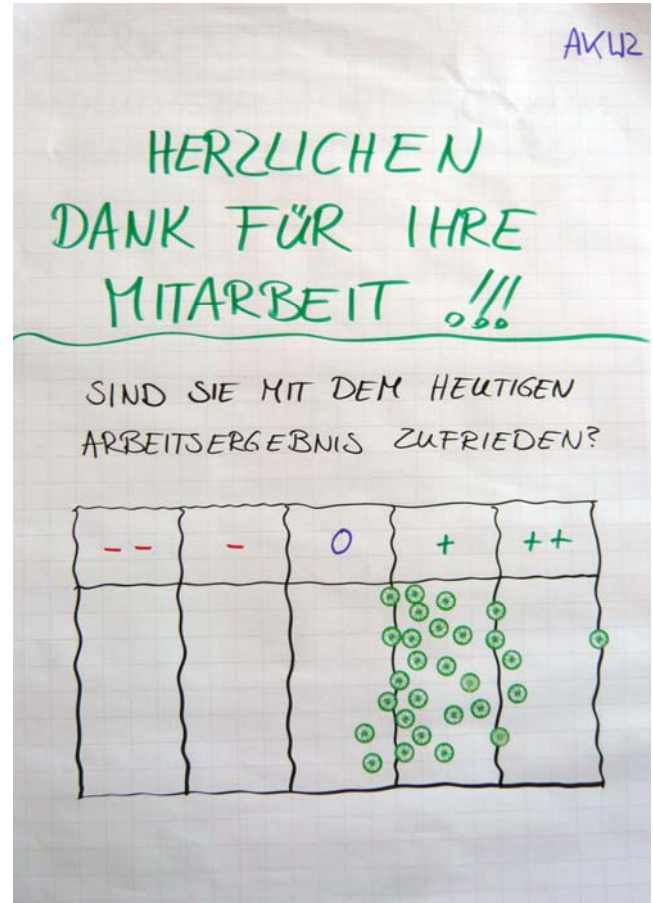 AKU2
HERZLICHEN
DANK FÜR IHRE
MITARBEIT !!!
SIND SIE MIT DEM HEUTIGEN
ARBEITSERGEBNIS ZUFRIEDEN?
-- - O + ++